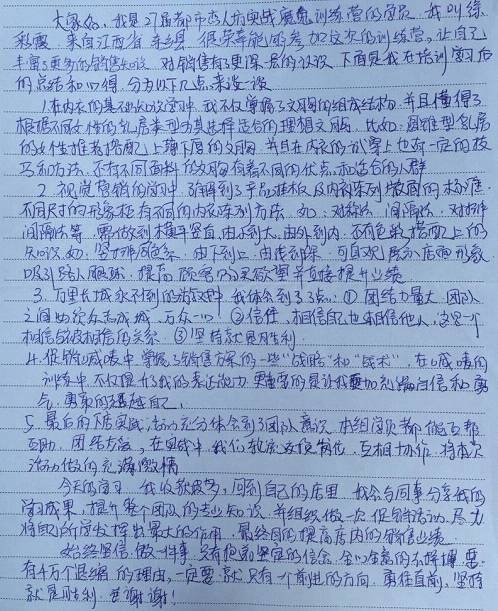 大家好，我是27届都市恋人的实战魔鬼训练营的学员，我叫徐
彩霞，来自江西省东乡县，很荣幸能够参加这次的训练营，让自己
丰富了更多的销售知识，对销售有了更深一层的认识，下面是我在培训学习后
的总结和心得，分为以下几点来谈谈
1.在内衣的基础知识学习中，我不仅掌握了文胸的组成结构，并且懂得了
根据不同女性的乳房类型为其选择适合的理想文胸，比如：圆锥型乳房
的女性推荐搭配上薄下厚的文胸，并且在内衣的试穿上也有一定的技
巧和方法，还有不同面料的文胸有着不同的优点和适合的人群
2.视觉营销的学习中，了解到了手吊挂板及内裤陈列橱窗的标准，
不同尺寸的形象柜有不同的内衣陈列方法，如：对称法，间隔法，对排
间隔法等，需做到横平竖直，由小到大，由外到内，还有色彩搭配上的
知识，如：竖排同色系，由下到上，由浅到深，可直观展示店面形象，
吸引路人眼球，提高顾客购买欲望并直接提升业绩
3.万里长城永不倒的游戏中，我体会到了3点：①团结力量大，团队
之间的众志成城，万众一心 ②信任，相信自己也相信他人，这是一个
相信与被相信的关系 ③坚持就是胜利
4.促销喊麦中，掌握了销售方案的一些“战略”和“战术”，在喊麦的
训练中不仅提升了我的表达能力，更重要的是让我更加充满自信和勇
气，勇敢的超越自己
5.最后的下店实战，活动充分体会到了团队意识，本组同员都能互帮
互助，团结友爱，在实战中，我们敢于反便制化，互相协作，将本次
活动做的充满激情
今天的学习，我收获颇多，回到自己的店里，我会与同事分享我的
学习成果，提升整个团队的专业知识，并组织做一次促销活动，尽力
将自己所学发挥出最大的作用，最终目的提高店内的销售业绩
始终坚信，做一件事，只有抱着坚定的信念，全心全意的去拼搏，要
有千万个退缩的理由，一定要就只有一个前进的方向，勇往直前，坚持
就是胜利，谢谢！